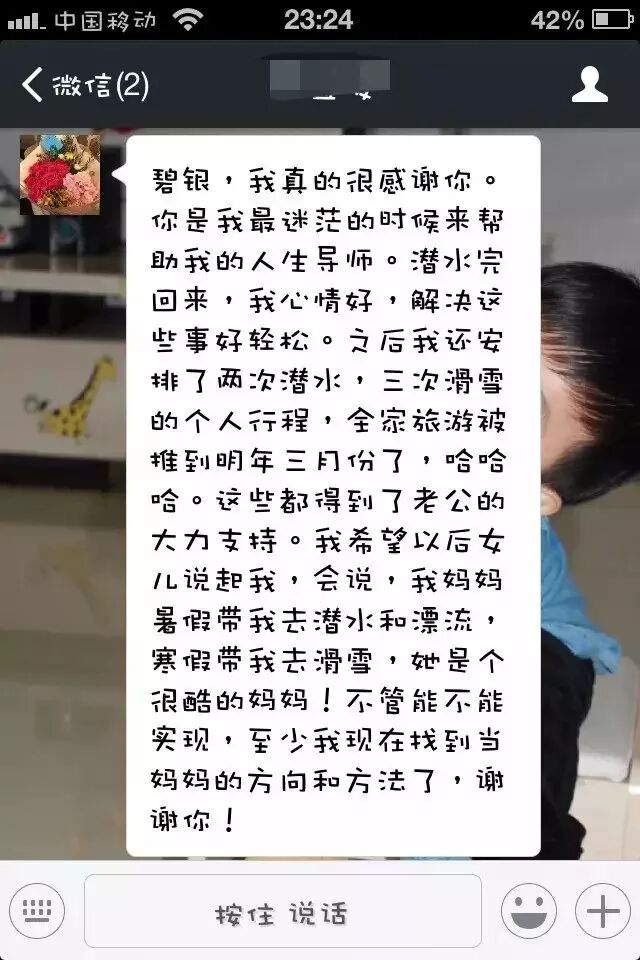 中国移动 23:24 42%
微信(2)
碧银，我真的很感谢你。
你是我最迷茫的时候来帮
助我的人生导师。潜水完
回来，我心情好，解决这
些事好轻松。之后我还安
排了两次潜水，三次滑雪
的个人行程，全家旅游被
推到明年三月份了，哈哈
哈。这些都得到了老公的
大力支持。我希望以后女
儿说起我，会说，我妈妈
暑假带我去潜水和漂流，
寒假带我去滑雪，她是个
很酷的妈妈！不管能不能
实现，至少我现在找到当
妈妈的方向和方法了，谢
谢你！
按住 说话